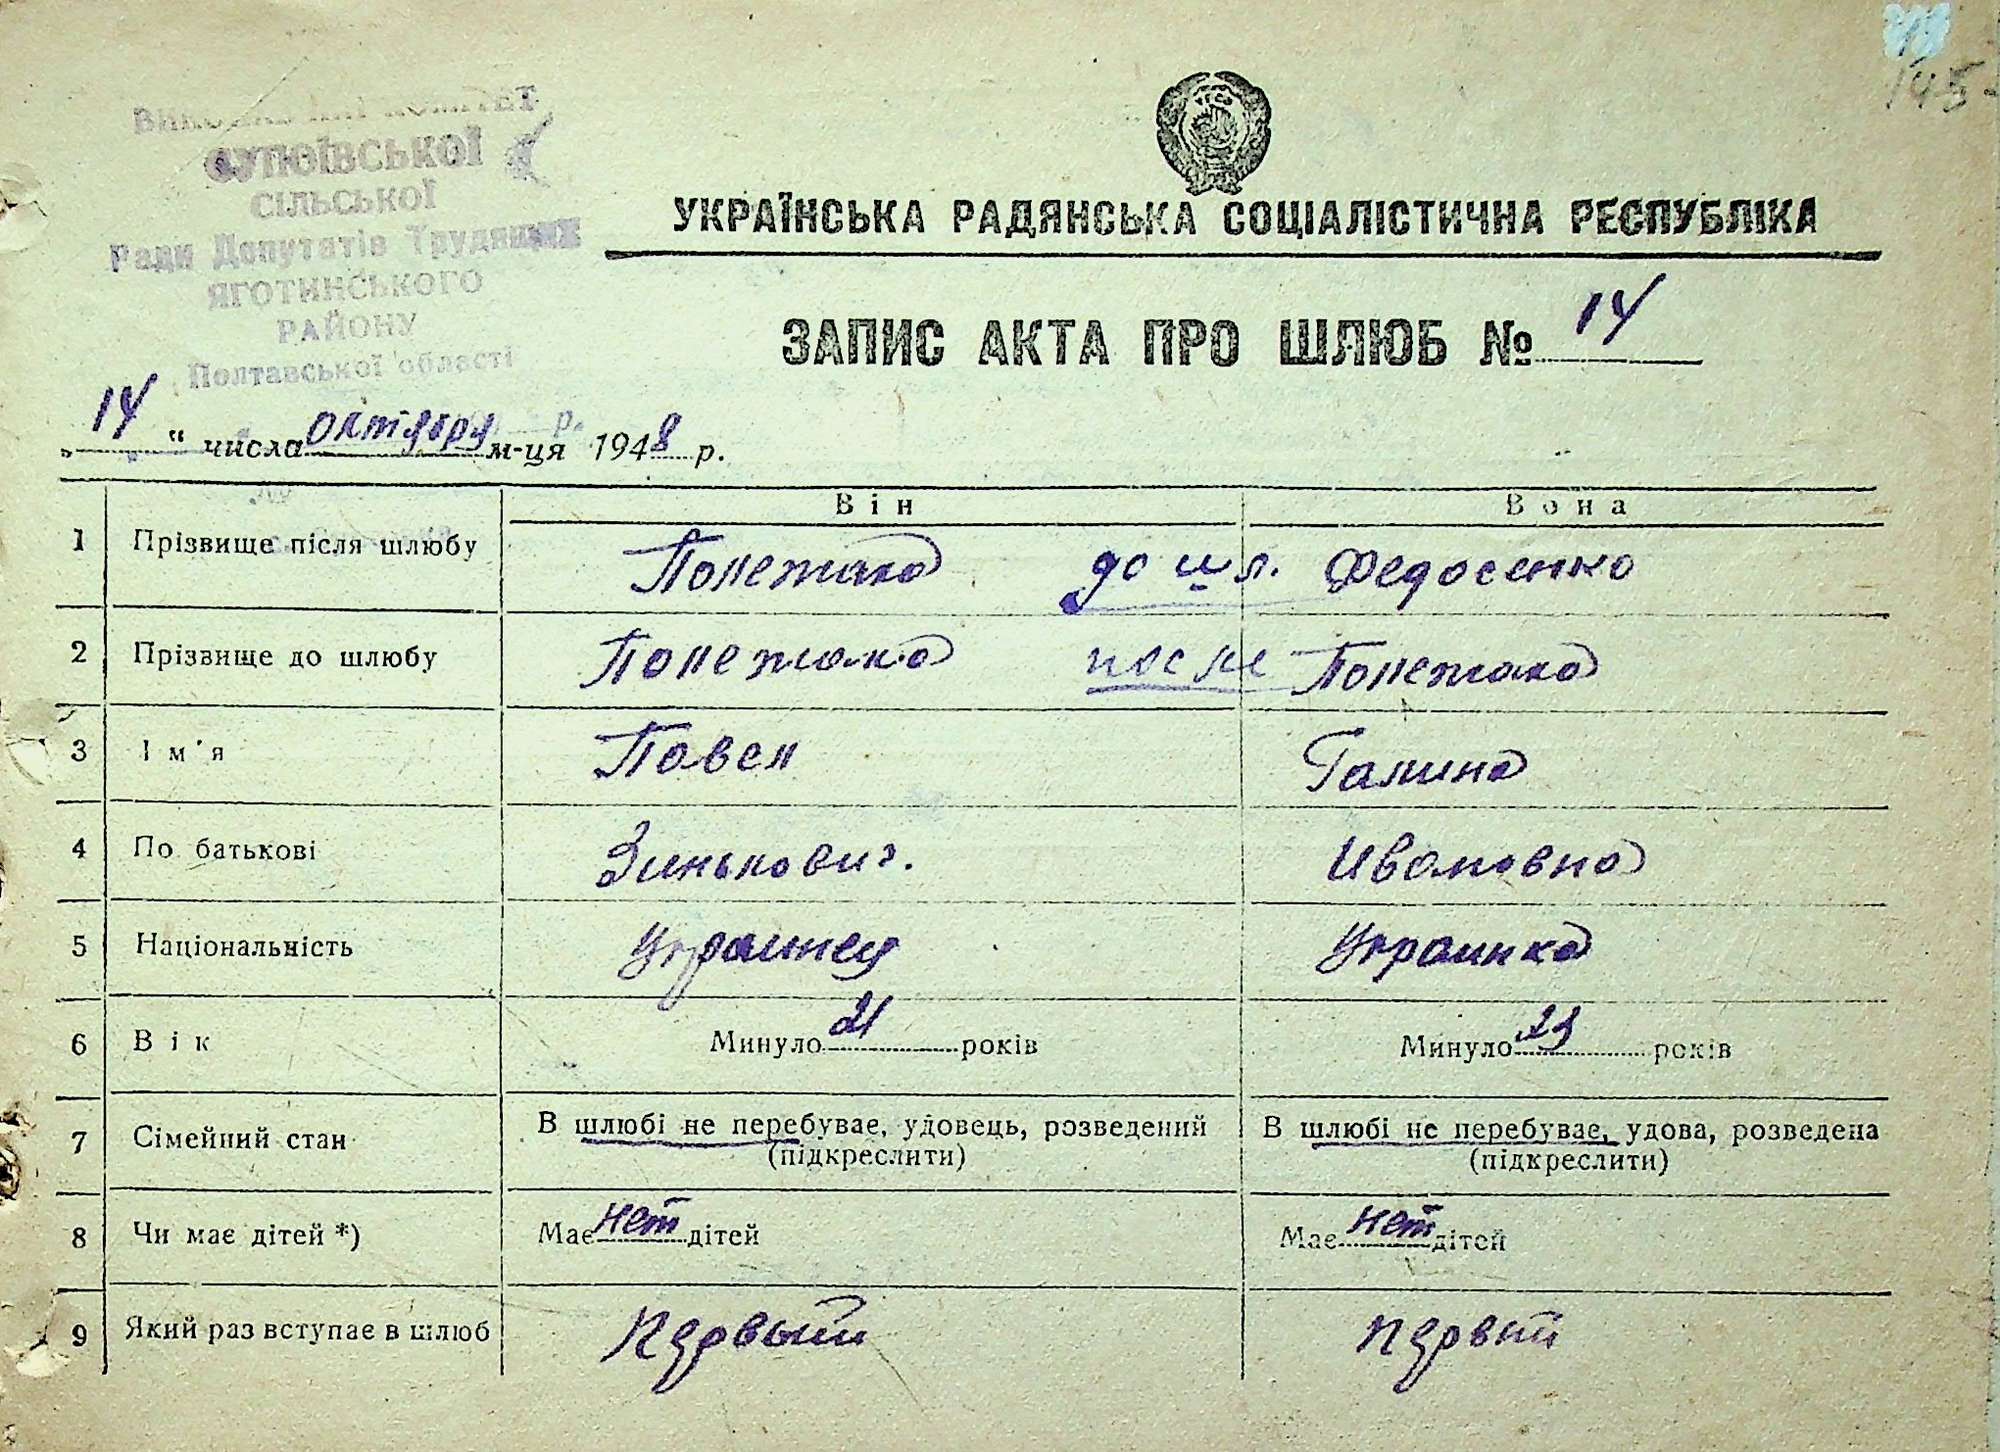 145
ВИКОНАВЧИЙ КОМІТЕТ
СУПОЇВСЬКОЇ
СІЛЬСЬКОЇ
Ради Депутатів Трудящих
ЯГОТИНСЬКОГО
РАЙОНУ
Полтавської області
УКРАЇНСЬКА РАДЯНСЬКА СОЦІАЛІСТИЧНА РЕСПУБЛІКА
ЗАПИС АКТА ПРО ШЛЮБ № 14
„14“ числа октября м-ця 1948 р.
Він Вона
1 Прізвище після шлюбу Полежака до шл. Федосенко
2 Прізвище до шлюбу Полежака после Полежака
3 Ім'я Павел Галина
4 По батькові Зинькович. Ивановна
5 Національність Украинец Украинка
6 Вік Минуло 21 років Минуло 23 років
7 Сімейний стан В шлюбі не перебуває, удовець, розведений (підкреслити) В шлюбі не перебуває, удова, розведена (підкреслити)
8 Чи має дітей *) Має нет дітей Має нет дітей
9 Який раз вступає в шлюб Первый Первый